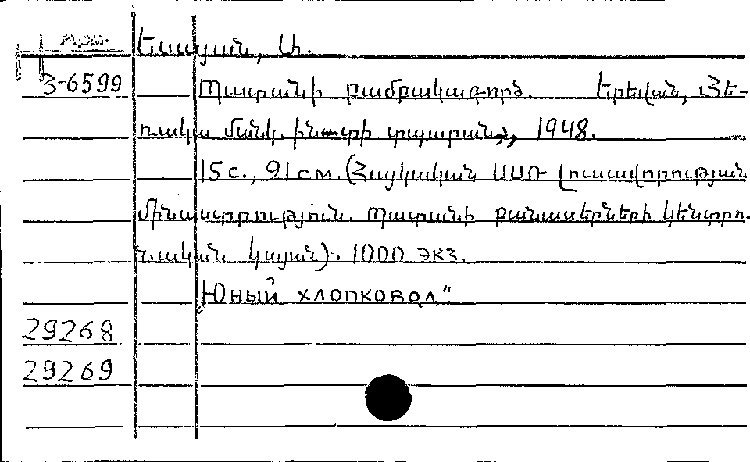 Եսայան, Ա.
3-6599 Պատանի բամբակագործ. Երևան, Հե-
ռակա մանկ. ինստ-ի տպարան, 1948.
15 с., 21 см. (Հայկական ՍՍՌ լուսավորության
մինիստրություն. Պատանի բանասերների կենտրո-
նական կայան). 1000 экз.
"Юный хлопковод"
29268
29269